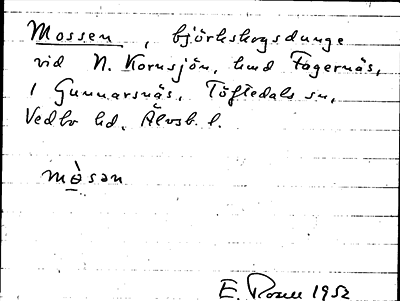 Mossen, björkskogsdunge
vid N. Kornsjön, hmd Fagernäs,
1 Gunnarsnäs, Töftedals sn,
Vedbo hd. Älvsb. l.
mɵ̀san
E. Rosell 1952